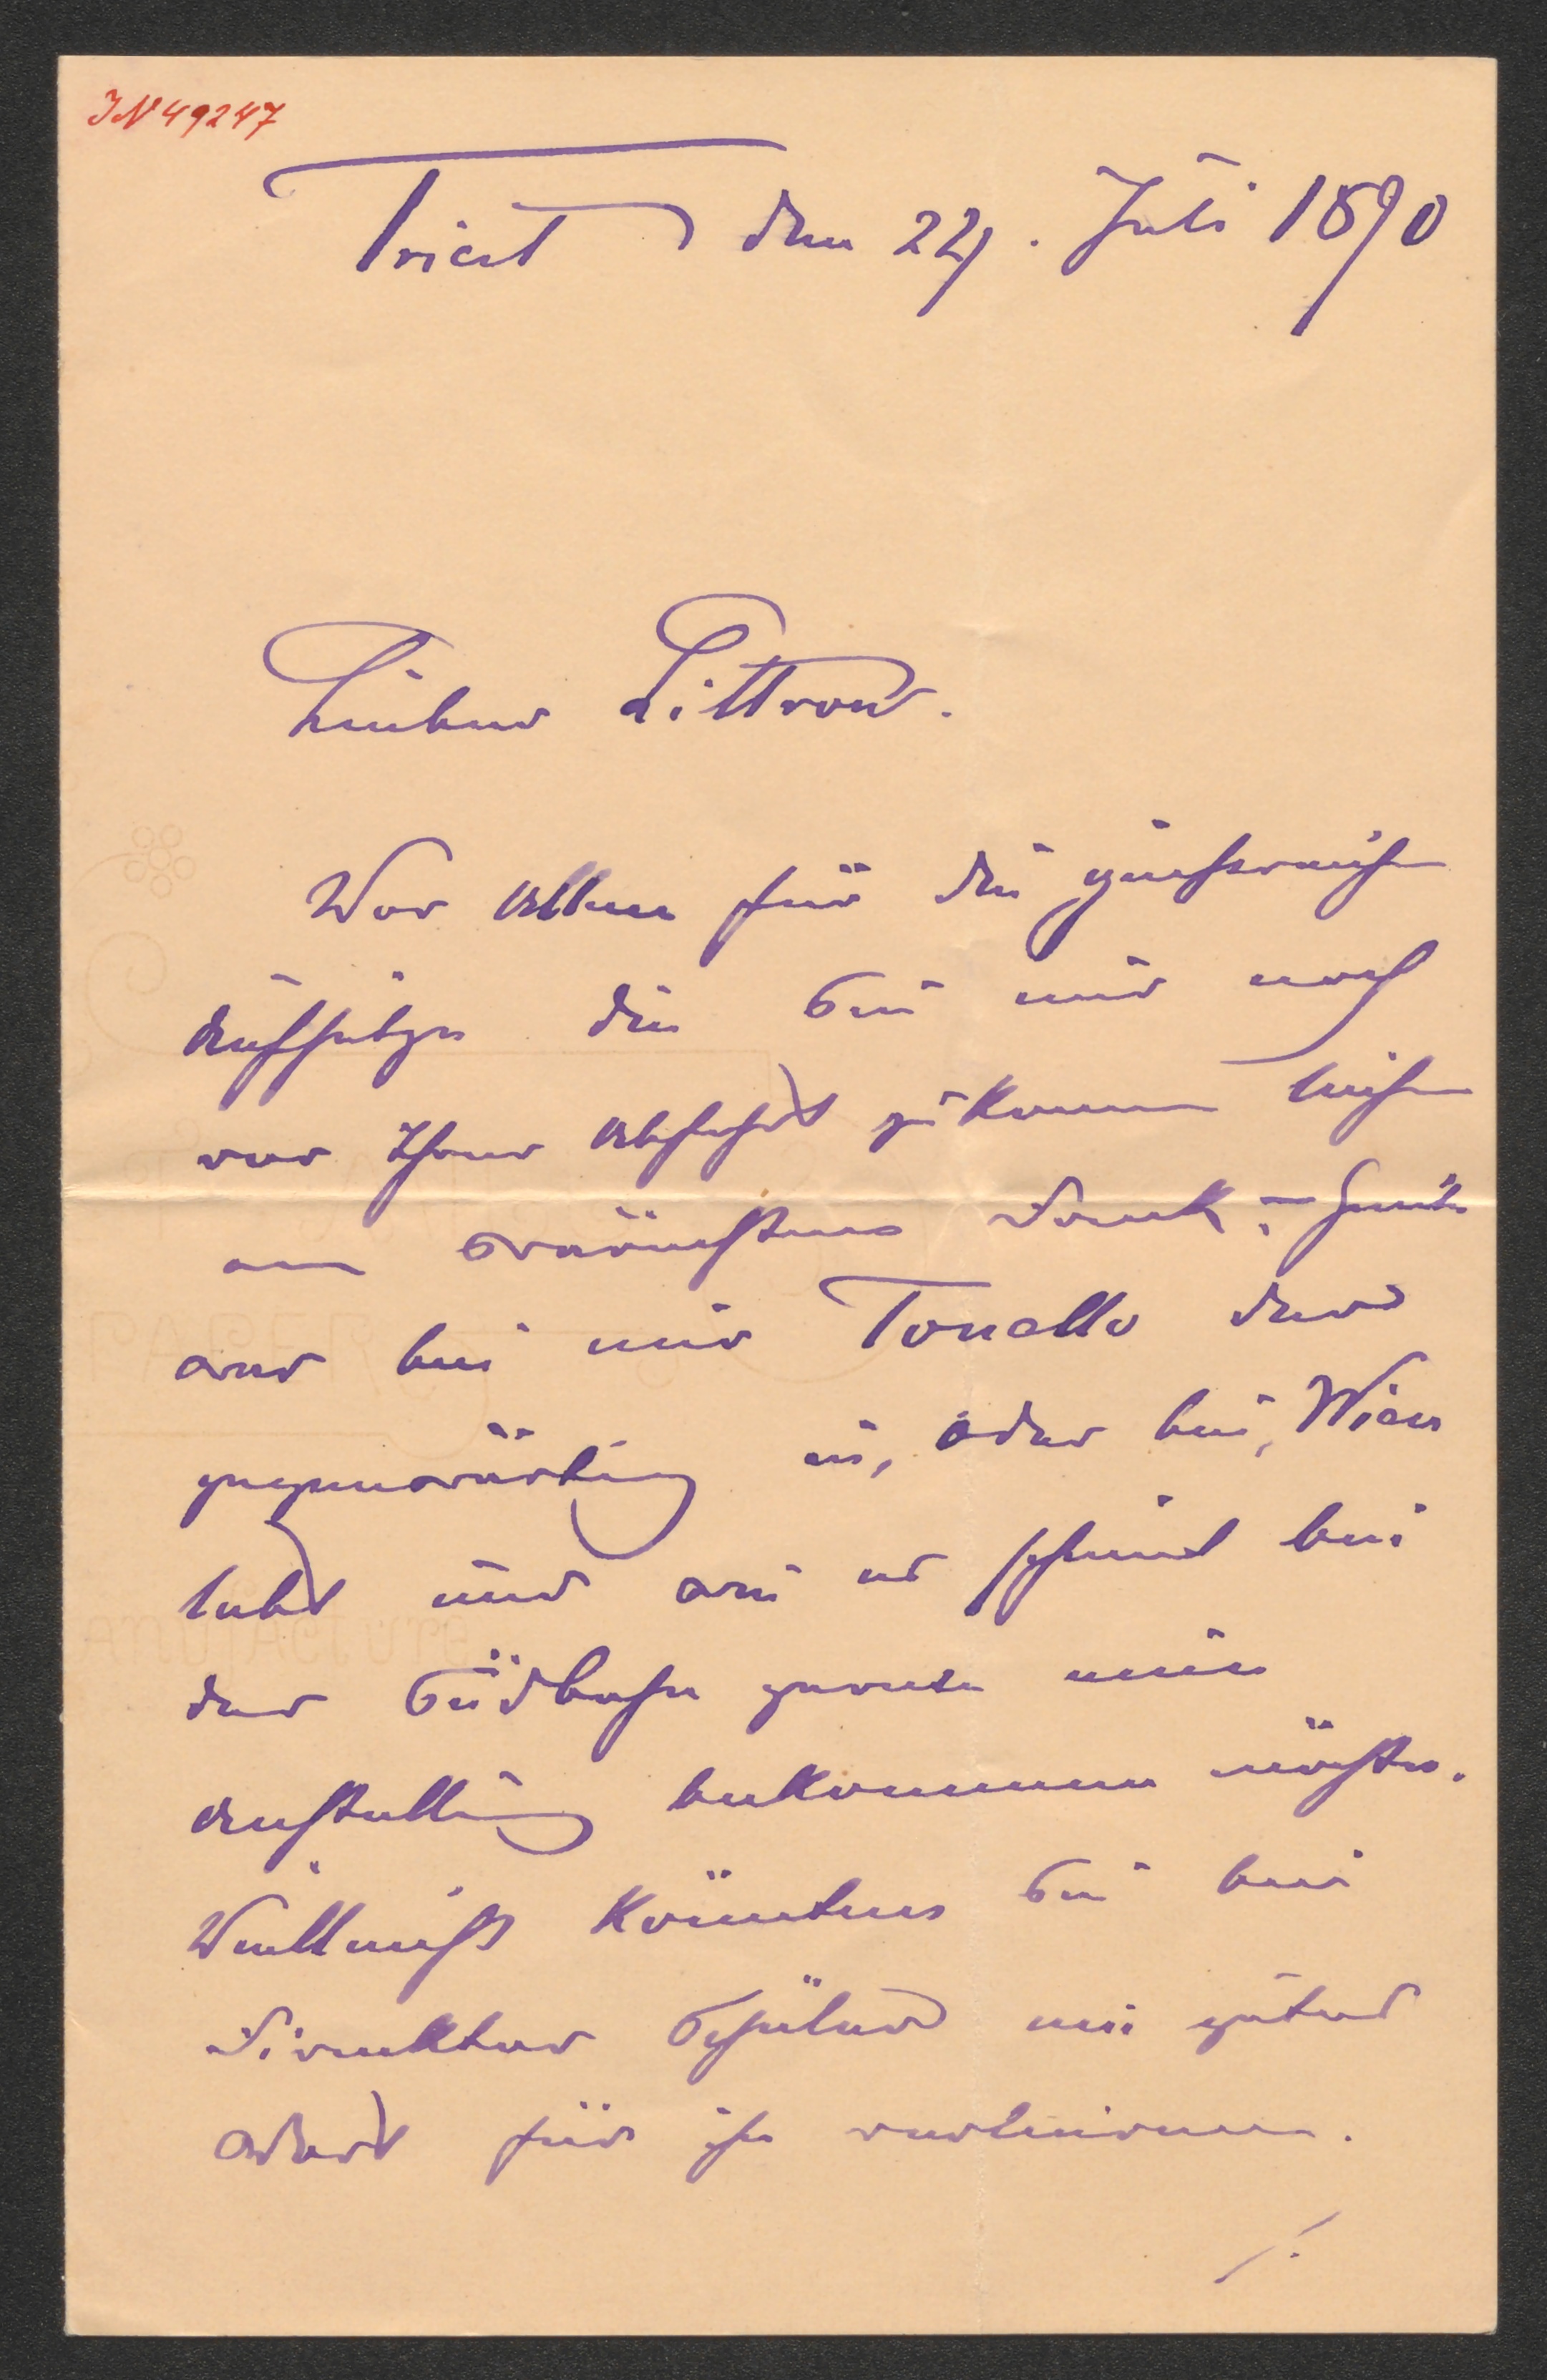 IN 49247
Triest den 29. Juli 1890
Lieber Littrow.
Vor Allem für die geistreichen
Aufsätze die Sie mir noch
vor Ihrer Abfahrt zukommen ließen
den wärmsten Dank. – Heute
war bei mir Tonello der
gegenwärtig in, oder bei, Wien
lebt und wie es scheint bei
der Südbahn gerne eine
Anstellung bekommen möchte.
Vielleicht könnten Sie bei
Direktor Schüler ein gutes
Wort für ihn verlieren.
./.